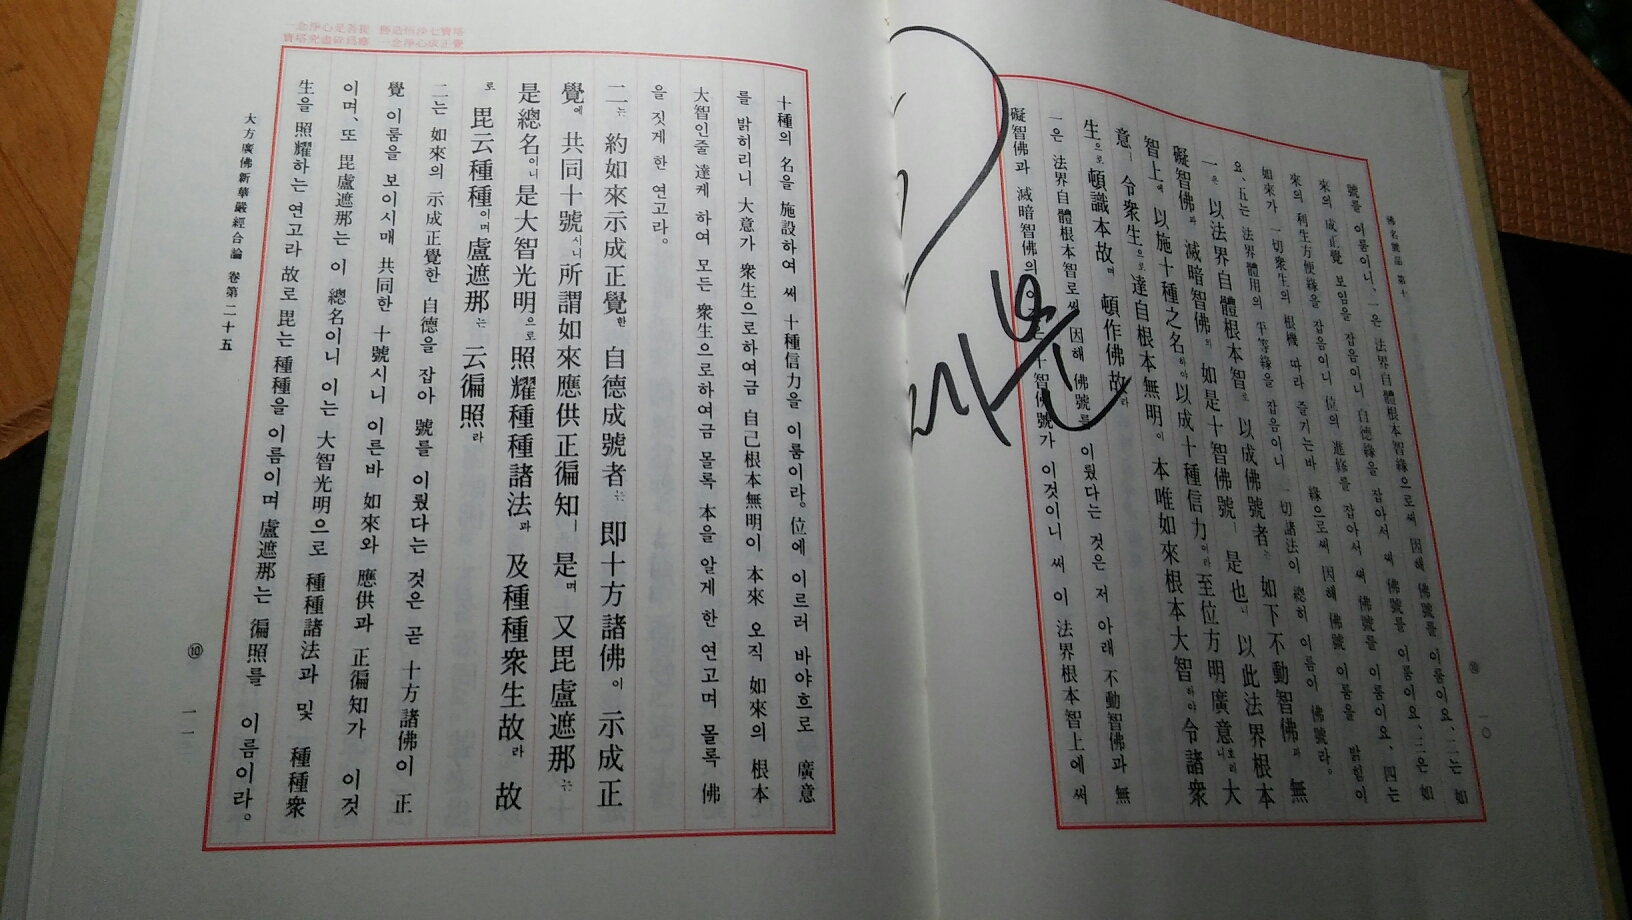 佛名號品 第十
號를 이룸이니、一은 法界自體根本智緣으로써 因해 佛號를 이룸이요、二는 如
來의 成正覺 보임을 잡음이니 自德緣을 잡아서 써 佛號를 이룸이요、三은 如
來의 利生方便緣을 잡음이니 位의 進修를 잡아서 써 佛號를 이룸이요、四는
如來가 一切衆生의 根機 따라 즐기는바 緣으로써 因해 佛號 이룸을 밝힘이
요、五는 法界體用의 平等緣을 잡음이니 一切諸法이 總히 이름이 佛號라。
一은 以法界自體根本智로 以成佛號者는 如下不動智佛과 無
礙智佛과 滅暗智佛의 如是十智佛號ㅣ 是也니 以此法界根本
智上에 以施十種之名하야 以成十種信力이라 至位方明廣意호리니 大
意ㅣ 令衆生으로 達自根本無明이 本唯如來根本大智하야 令諸衆
生으로 頓識本故며 頓作佛故라
一은 法界自體根本智로써 因해 佛號를 이뤘다는 것은 저 아래 不動智佛과 無
礙智佛과 滅暗智佛의 十智佛號가 이것이니 써 이 法界根本智上에 써
一念淨心是菩提 勝造恒沙七寶塔
寶塔究盡碎爲塵 一念淨心成正覺
十種의 名을 施設하여 써 十種信力을 이룸이라。位에 이르러 바야흐로 廣意
를 밝히리니 大意가 衆生으로하여금 自己根本無明이 本來 오직 如來의 根本
大智인줄 達케 하여 모든 衆生으로하여금 몰록 本을 알게 한 연고며 몰록 佛
을 짓게 한 연고라。
二는 約如來示成正覺한 自德成號者는 即十方諸佛이 示成正
覺에 共同十號시니 所謂如來應供正徧知ㅣ 是며 又毘盧遮那는
是總名이니 是大智光明으로 照耀種種諸法과 及種種衆生故라 故
로 毘云種種이며 盧遮那는 云徧照라
二는 如來의 示成正覺한 自德을 잡아 號를 이뤘다는 것은 곧 十方諸佛이 正
覺 이룸을 보이시매 共同한 十號시니 이른바 如來와 應供과 正徧知가 이것
이며、또 毘盧遮那는 이 總名이니 이는 大智光明으로 種種諸法과 및 種種衆
生을 照耀하는 연고라 故로 毘는 種種을 이름이며 盧遮那는 徧照를 이름이라。
大方廣佛新華嚴經合論 卷第二十五
⑩ 一一